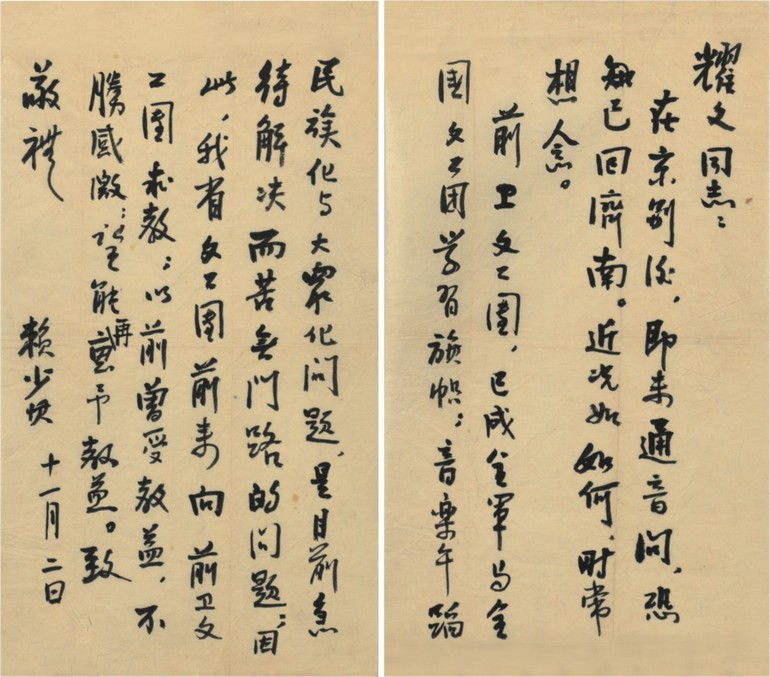 耀文同志：
在京别后，即未通音问，恐
已回濟南。近况如如何，时常
想念。
前卫文工團，已成全軍与全
國文工团学習旗帜；音樂午蹈
民族化与大眾化问题，是目前急
待解决而苦無门路的问题；因
此，我省文工團前来向前卫文
工團求教；以前曾受教益，不
勝感激；望能再惠予教益。致
敬禮
赖少其 十一月二日